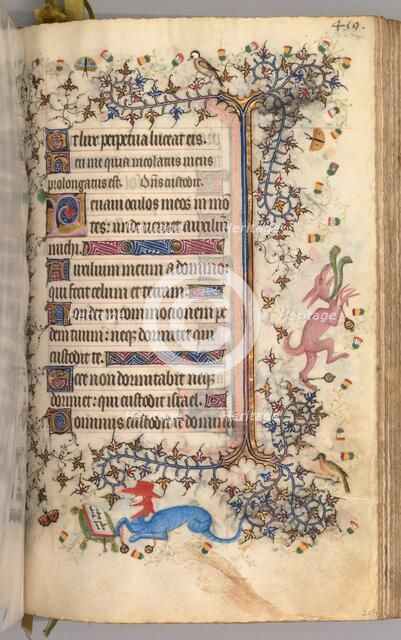 419.
Et lux perpetua luceat eis.
Heu me quia incolatus meus
prolongatus est. Dns custodit.
Levaui oculos meos in mo
tes: unde veniet auxiliu
michi.
Auxilium meum a domino:
qui fecit celum et terram.
Non det in commotionem pe
dem tuum: neque dormitet qui
custodit te.
Ecce non dormitabit neque
dormiet: qui custodit israel.
Dominus custodit te dominus
Heritage
Heritage